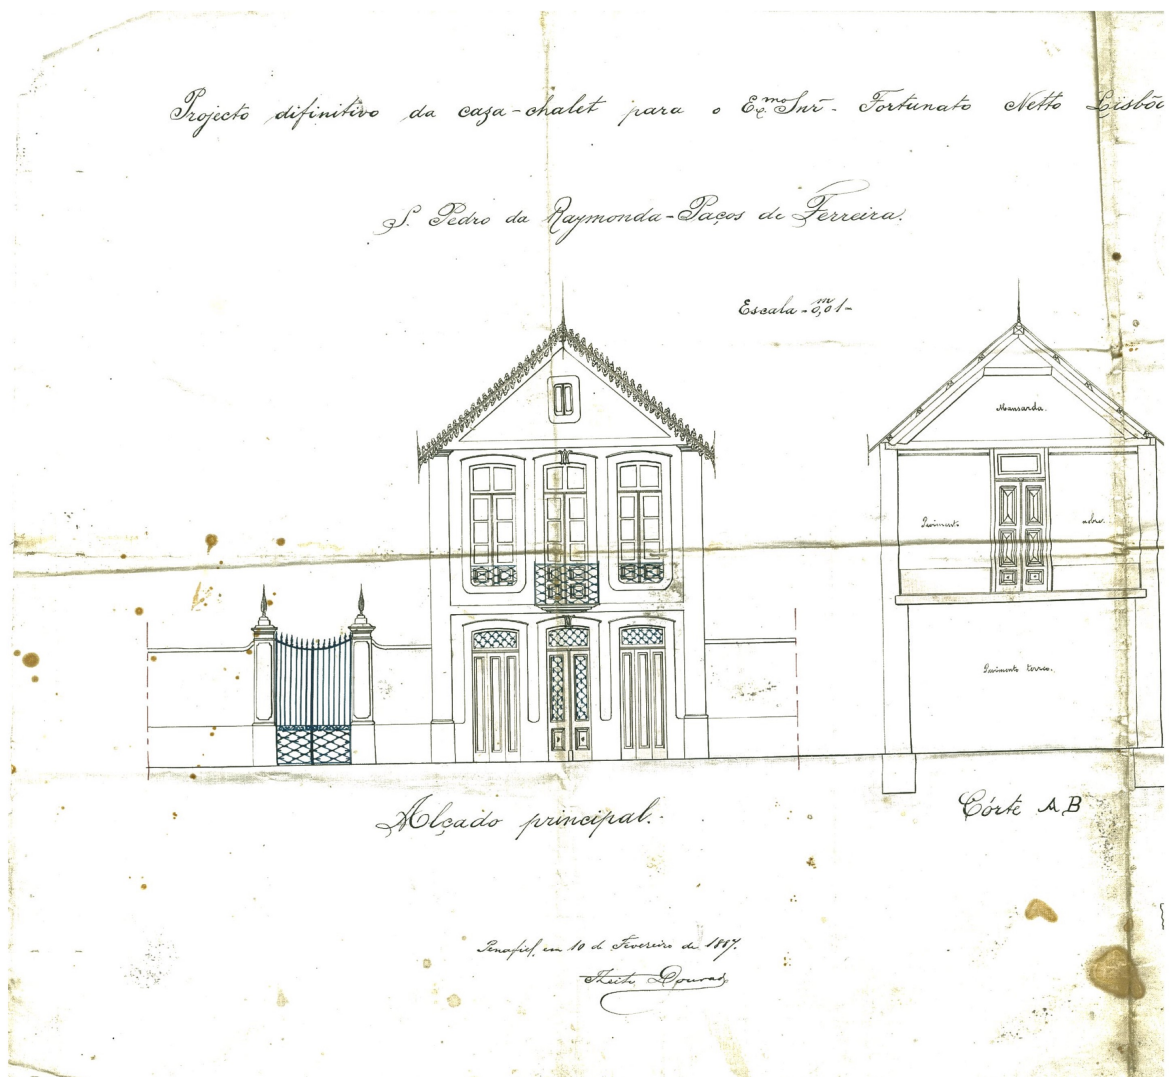 Projecto difinitivo da caza-chalet para o Ex.mo Snr. Fortunato Netto Lisbôa
S. Pedro da Raymonda-Paços de Ferreira.
Escala-0,m01-
Mansarda.
Pavimento nobre.
Pavimento terreo.
Alçado principal.
Córte A.B
Penafiel, em 10 de Fevereiro de 1887.
Leite Dourado